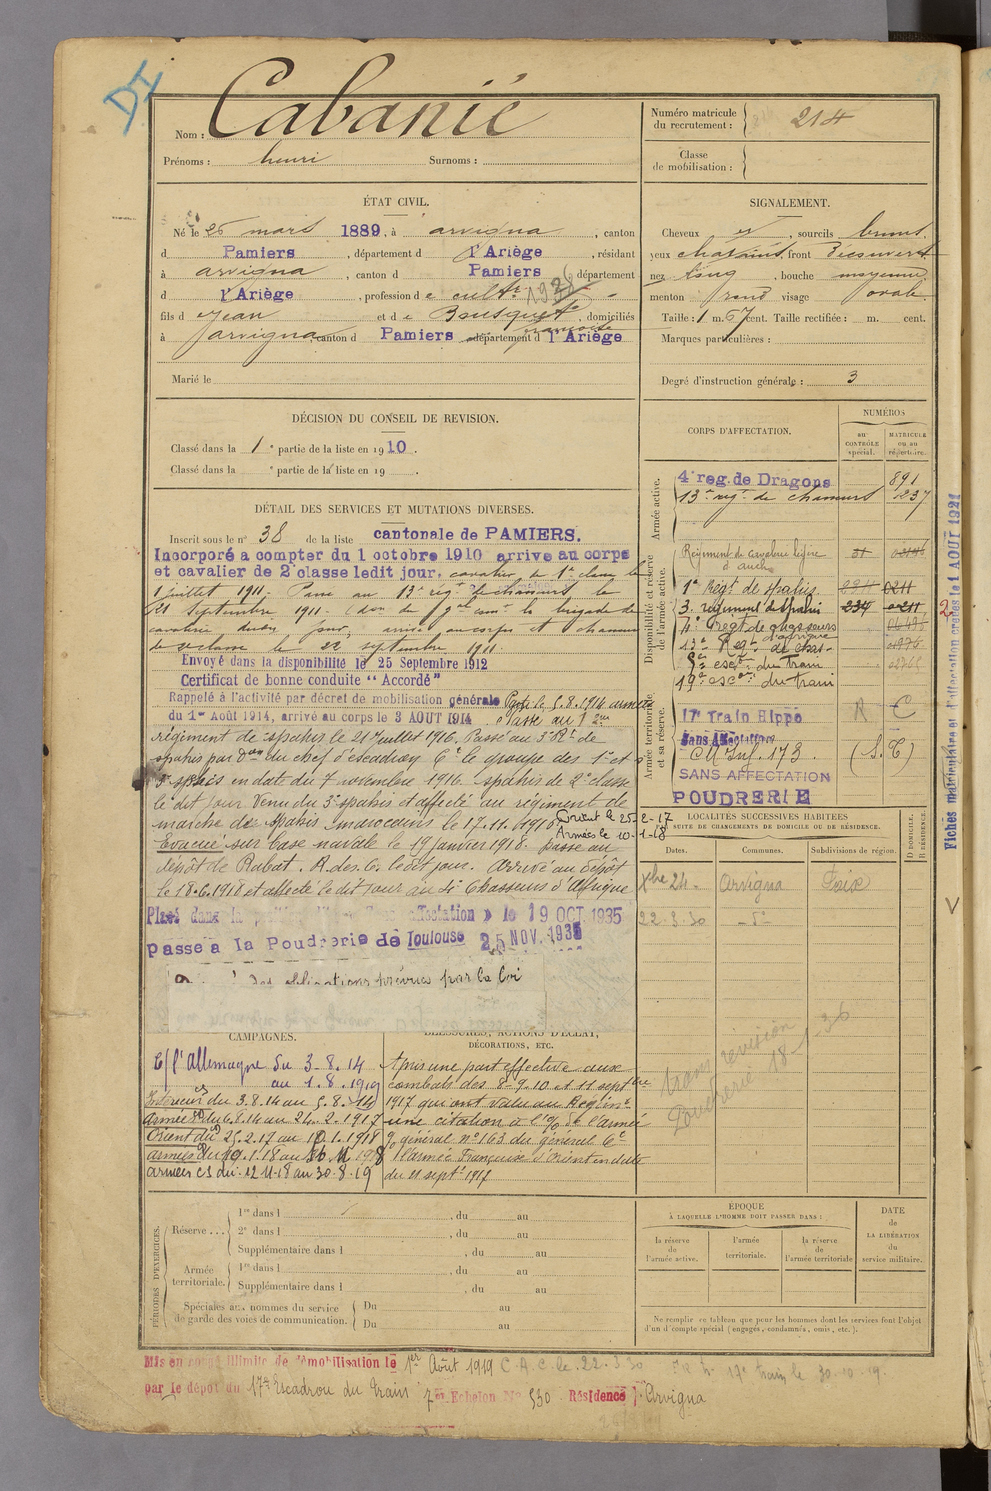 DI
Nom : Cabanié
Prénoms : henri Surnoms :
Numéro matricule du recrutement : 214
Classe de mobilisation :
ÉTAT CIVIL.
Né le 26 mars 1889, à arvigna, canton
d Pamiers, département d l'Ariège, résidant
à arvigna, canton d Pamiers département
d l'Ariège, profession de cultr 1936
fils d Jean et de Bousquet françoise, domiciliés
à arvigna canton d Pamiers département d l'Ariège
Marié le
SIGNALEMENT.
Cheveux et, sourcils bruns
yeux chatains, front Découvert
nez long, bouche moyenne
menton rond visage ovale
Taille : 1 m. 67 cent. Taille rectifiée : m. cent.
Marques particulières :
Degré d'instruction générale : 3
DÉCISION DU CONSEIL DE REVISION.
Classé dans la 1e partie de la liste en 1910.
Classé dans la e partie de la liste en 19 .
DÉTAIL DES SERVICES ET MUTATIONS DIVERSES.
Inscrit sous le n° 38 de la liste cantonale de PAMIERS.
Incorporé a compter du 1 octobre 1910 arrive au corps
et cavalier de 2e classe ledit jour, cavalier de 1e classe le
1 juillet 1911. Passé au 13e reg. de chasseurs le
21 Septembre 1911. (don du gal comt la brigade de
cavalerie dudit jour, arrivé au corps et chasseur
de 2e classe le 22 septembre 1911.
Envoyé dans la disponibilité le 25 Septembre 1912
Certificat de bonne conduite "Accordé"
Rappelé à l'activité par décret de mobilisation générale Parti le 5.8.1914 armées
du 1er Août 1914, arrivé au corps le 3 AOUT 1914. Passé au 1er
régiment de spahis le 21 Juillet 1916. Passé au 3e Rt de
spahis par Don du chef d'escadron Ct le groupe des 1er et
3e spahis en date du 7 novembre 1916. spahis de 2e classe
le dit jour. Venu du 3e spahis et affecté au régiment de
marche de spahis marocains le 17.11.1916 Orient le 25-2-17
Armées le 10-1-18
Evacué sur base navale le 19 janvier 1918. passé au
dépôt de Rabat. R.des.C. le dit jour. Arrivé au Dépôt
le 18.6.1918 et affecté le dit jour au 4e Chasseurs d'Afrique
Placé dans la position affectation » le 19 OCT. 1935
passé à la Poudrerie de Toulouse 25 NOV. 1935
des obligations prévues par la loi
CORPS D'AFFECTATION.
NUMÉROS
au CONTRÔLE spécial.
MATRICULE ou au répertoire.
Armée active.
4e reg. de Dragons 891
13e regt de chasseurs 1237
Disponibilité et réserve de l'armée active.
Régiment de cavalerie légère d'auch 31
1er Régt de spahis 0211
3e régiment de spahis 234 0211 2
4e Régt de chasseurs d'afrique
13e Régt de chas-
8e esc. du Train
19e esc. du train
Armée territoriale et sa réserve.
17e Train Hippo R C
Sans Affectation
CM Inf. 173 (S.C)
SANS AFFECTATION
POUDRERIE
LOCALITÉS SUCCESSIVES HABITÉES
PAR SUITE DE CHANGEMENTS DE DOMICILE OU DE RÉSIDENCE.
Dates. Communes. Subdivisions de région. D DOMICILE. R RÉSIDENCE.
Xbre 24. Arvigna Foix
22-3-30 - do -
trans revision
Poudrerie 18-1-36
Fiches matriculaire et d'affectation créées le 1 AOUT 1921
CAMPAGNES.
C/ l'Allemagne du 3-8-14
au 1.8.1919
Intérieur du 3.8.14 au 5.8.14
Armée du 6.8.14 au 24.2.1917
Orient du 25.2.17 au 10.1.1918
Armées du 10.1.18 au 11 11 1918
armées cs du 12-11-18 au 30-8-19
BLESSURES, ACTIONS D'ÉCLAT,
DÉCORATIONS, ETC.
A pris une part effective aux
combats des 8-9-10 et 11 septbre
1917 qui ont valu au Régimt
une citation à l'o/ de l'armée
o/ général n° 163 du général Ct
l'armée Française d'Orient en date
du 21 septt 1917
PÉRIODES D'EXERCICES.
Réserve... 1re dans l , du au
2e dans l , du au
Supplémentaire dans l , du au
Armée territoriale. 1re dans l , du au
Supplémentaire dans l , du au
Spéciales aux hommes du service de garde des voies de communication. Du au
Du au
ÉPOQUE
À LAQUELLE L'HOMME DOIT PASSER DANS :
la réserve de l'armée active.
l'armée territoriale.
la réserve de l'armée territoriale
DATE de LA LIBÉRATION du service militaire.
Ne remplir ce tableau que pour les hommes dont les services font l'objet
d'un compte spécial (engagés, condamnés, omis, etc.).
Mis en congé illimité de démobilisation le 1er Août 1919 C.A.C. le 22.3.30 17e train le 30-10-19.
par le dépôt du 17e Escadron du Train 7e Echelon N° 530 Résidence : Arvigna